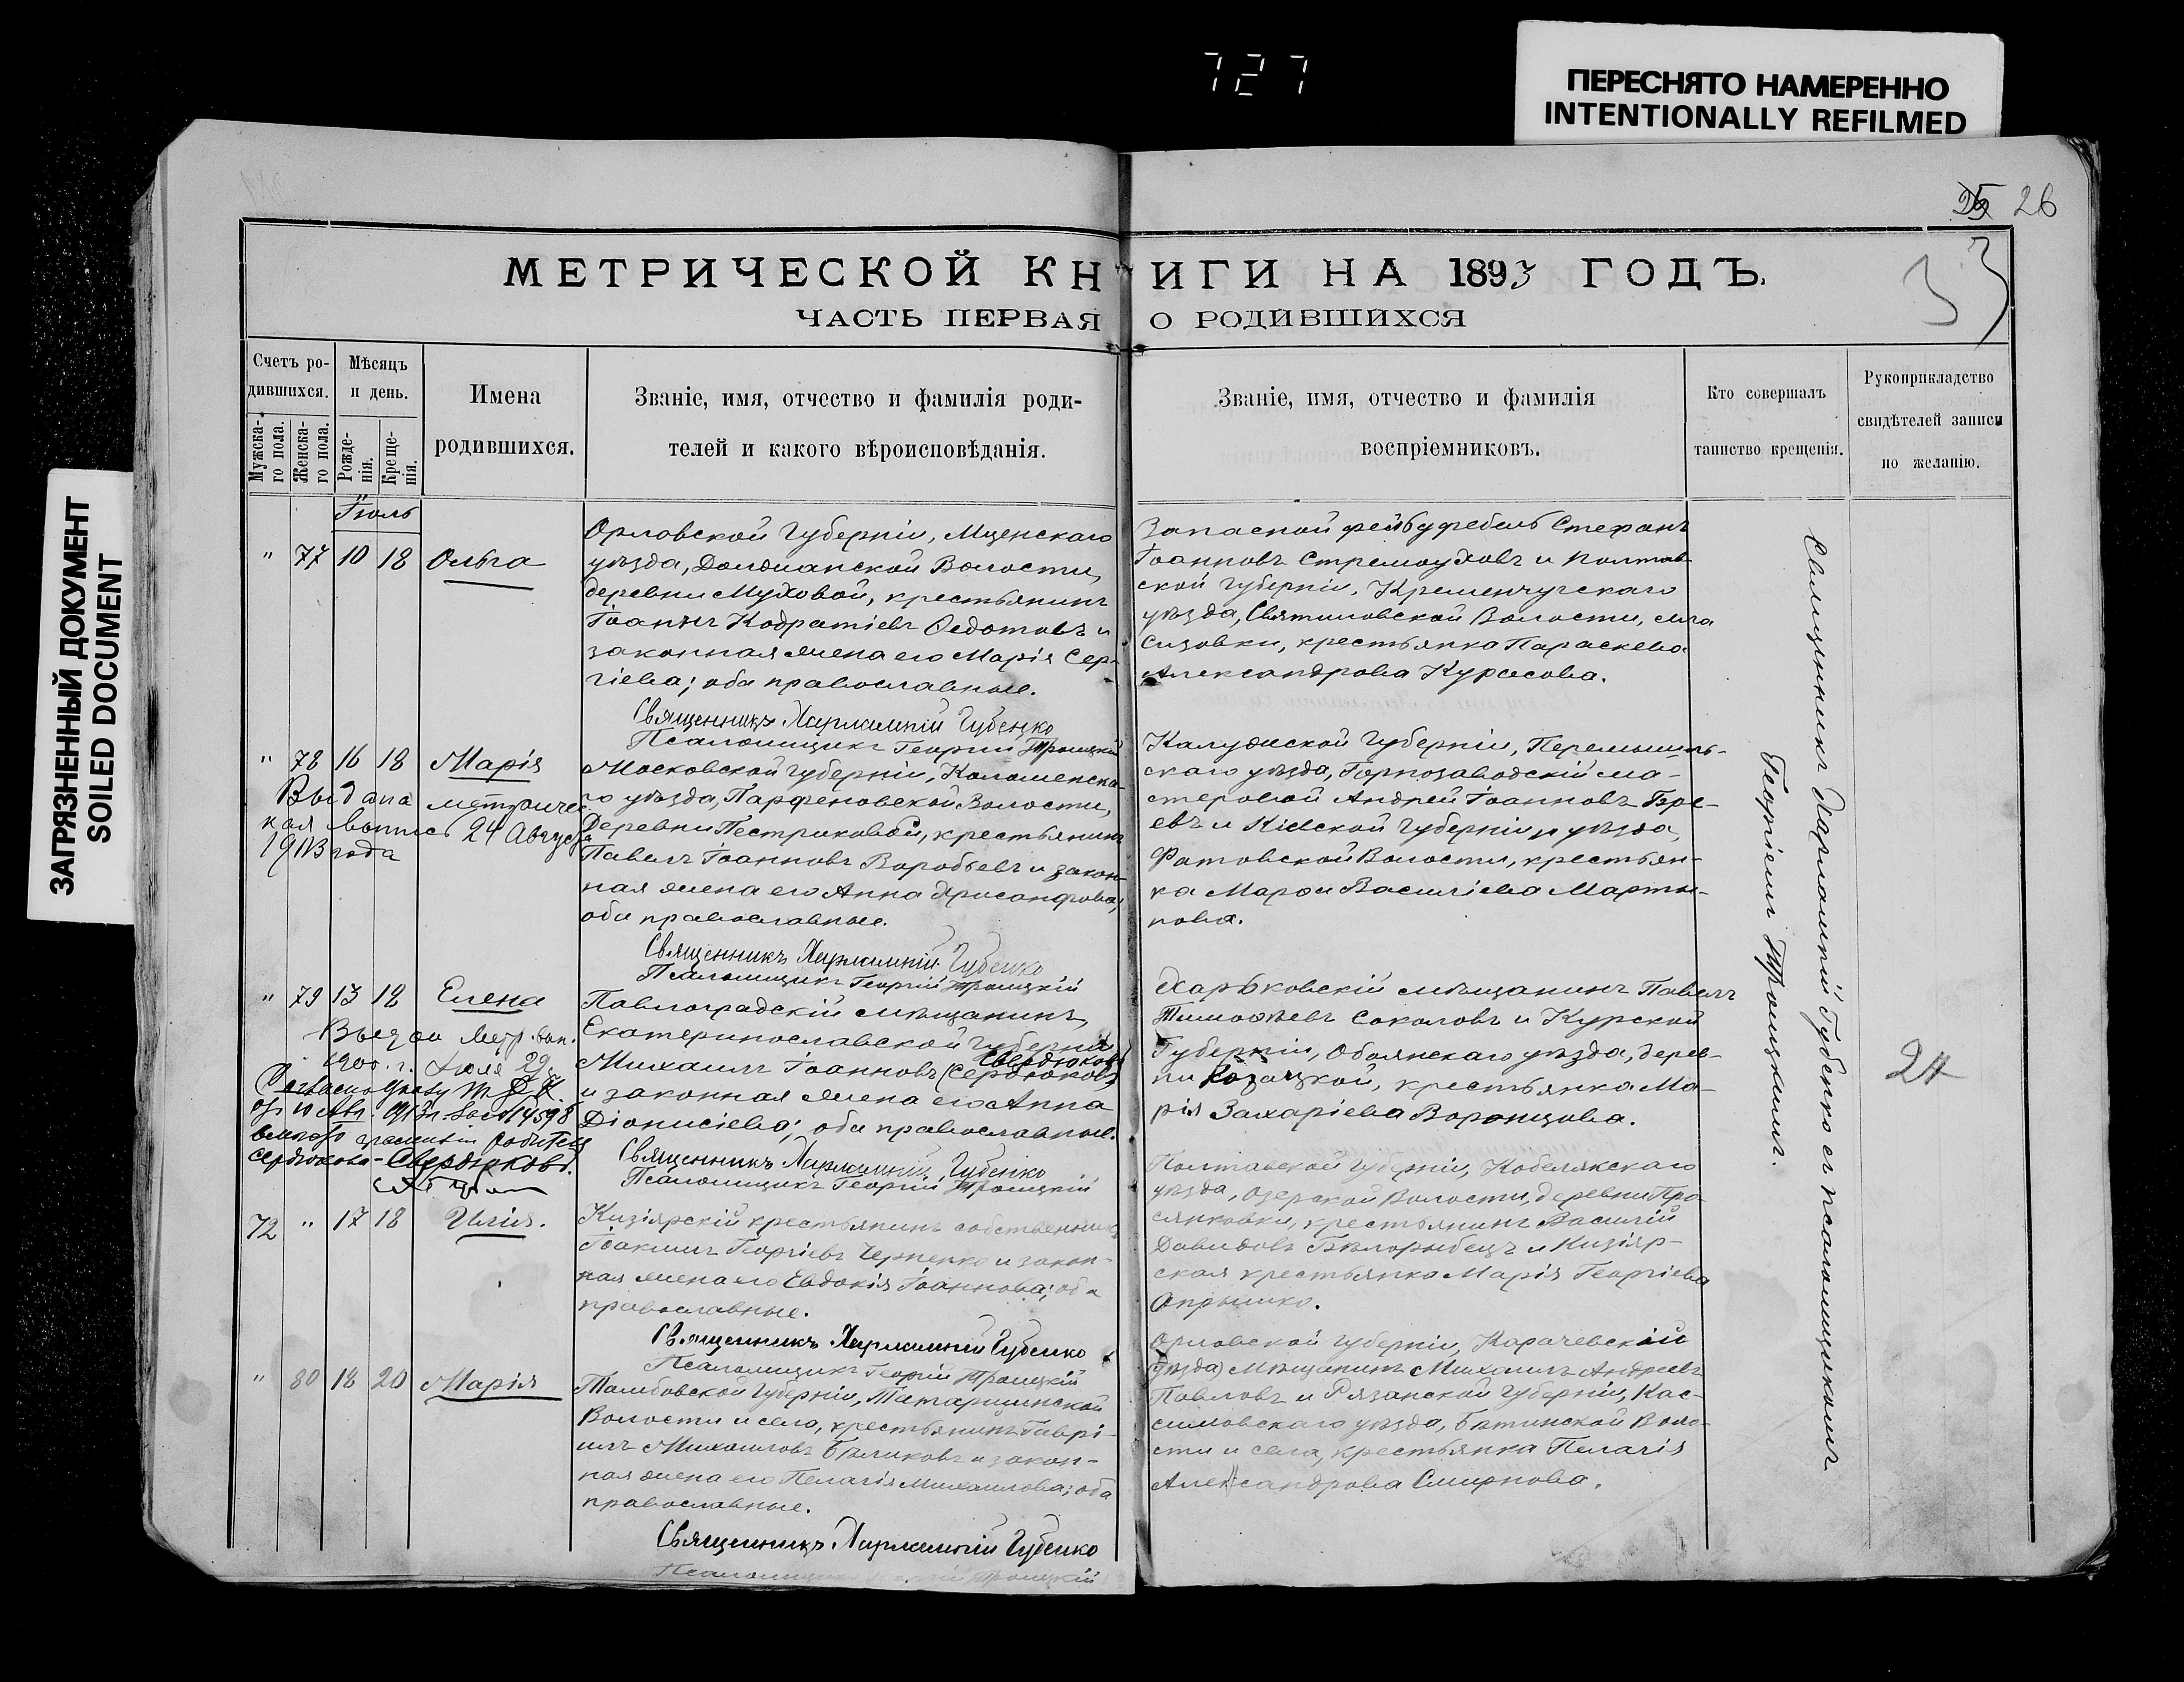 727
ПЕРЕСНЯТО НАМЕРЕННО
INTENTIONALLY REFILMED
ЗАГРЯЗНЕННЫЙ ДОКУМЕНТ
SOILED DOCUMENT
26
МЕТРИЧЕСКОЙ КНИГИ НА 1893 ГОДЪ.
ЧАСТЬ ПЕРВАЯ О РОДИВШИХСЯ
Счетъ ро-
дившихся.
Мужска-
го пола.
Женска-
го пола.
Мѣсяцъ
и день.
Рожде-
нія.
Креще-
нія.
Имена
родившихся.
Званіе, имя, отчество и фамилія роди-
телей и какого вѣроисповѣданія.
Званіе, имя, отчество и фамилія
воспріемниковъ.
Кто совершалъ
таинство крещенія.
Рукоприкладство
свидѣтелей записи
по желанію.
Іюль
" 77 10 18 Ольга
Орловской Губерніи, Мценскаго
уѣзда, Волости,
деревни Муховой, крестьянинъ
Іоаннъ Кодратіевъ Ѳедотовъ и
законная жена его Марія Сер-
гіева; оба православные.
Священникъ Харлампій Губенко
Псаломщикъ Георгій Троицкій
Запасной фельдфебель Стефанъ
Іоанновъ Стремоуховъ и Полтав-
ской Губерніи, Кременчугскаго
уѣзда, Святиловской Волости, села
крестьянка Параскева
Александрова Курасова.
" 78 16 18 Марія
Выдана метричес-
кая выпись 24 Августа
1913 года
Московской Губерніи, Коломенска-
го уѣзда, Парфеновской Волости,
Деревни Пестриковой, крестьянинъ
Павелъ Іоанновъ Воробьевъ и закон-
ная жена его Анна Хрисанфова;
оба православные.
Священникъ Харлампій Губенко
Псаломщикъ Георгій Троицкій
Калужской Губерніи, Перемышль-
скаго уѣзда, Горнозаводскій ма-
стеровой Андрей Іоанновъ
и Кіевской Губерніи и уѣзда,
Волости, крестьян-
ка Марфа Василіева Марты-
нова.
" 79 13 18 Елена
Выдан метр. вып.
1900 г. Іюля 29
Согласно Указу
родителей
Сердюкова - Свердюковъ.
Павлоградскій мѣщанинъ,
Екатеринославской Губерніи
Михаилъ Іоанновъ (Сердюковъ) Свердюковъ
и законная жена его Анна
Діонисіева; оба православные.
Священникъ Харлампій Губенко
Псаломщикъ Георгій Троицкій
Харьковскій мѣщанинъ Павелъ
Тимоѳеевъ Соколовъ и Курской
Губерніи, Обоянскаго уѣзда, дерев-
ни Козацкой, крестьянка Ма-
рія Захаріева Воронцова.
72 " 17 18 Илія.
Кизіярскій крестьянинъ собственникъ
Іоакимъ Георгіевъ Черненко и закон-
ная жена его Евдокія Іоаннова; оба
православные.
Священникъ Харлампій Губенко
Псаломщикъ Георгій Троицкій
Полтавской Губерніи, Кобелякскаго
уѣзда, Озерской Волости, деревни Про-
сянковки, крестьянинъ Василій
Давидовъ Бѣлорыбецъ и Кизіяр-
ская крестьянка Марія Георгіева
Опрышко.
" 80 18 20 Марія
Тамбовской Губерніи,
Волости и села, крестьянинъ Гаврі-
илъ Михаиловъ и закон-
ная жена его Пелагія Михаилова; оба
православные.
Священникъ Харлампій Губенко
Псаломщикъ Георгій Троицкій
Орловской Губерніи, Карачевскій
(уѣзда) мѣщанинъ Михаилъ Андреевъ
Павловъ и Рязанской Губерніи, Кас-
симовскаго уѣзда, Воло-
сти и села, крестьянка Пелагія
Александрова Смирнова.
Священникъ Харлампій Губенко съ псаломщикомъ
Георгіемъ Троицкимъ.
24